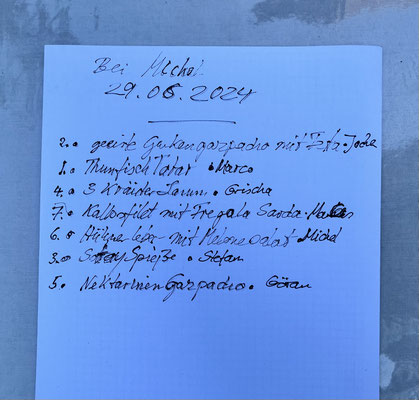 Bei Michel
29.06.2024
2. geeiste Gurkengazpacho mit Feta • Joche
1. Thunfisch Tatar • Marco
4. 3 Kräuter Lamm • Grischa
7. Kalbsfilet mit Fregola Sarda •
6. Hühnerleber mit Melonesalat • Michel
3. Satay Spieße • Stefan
5. Nektarinen Gazpacho • Göran